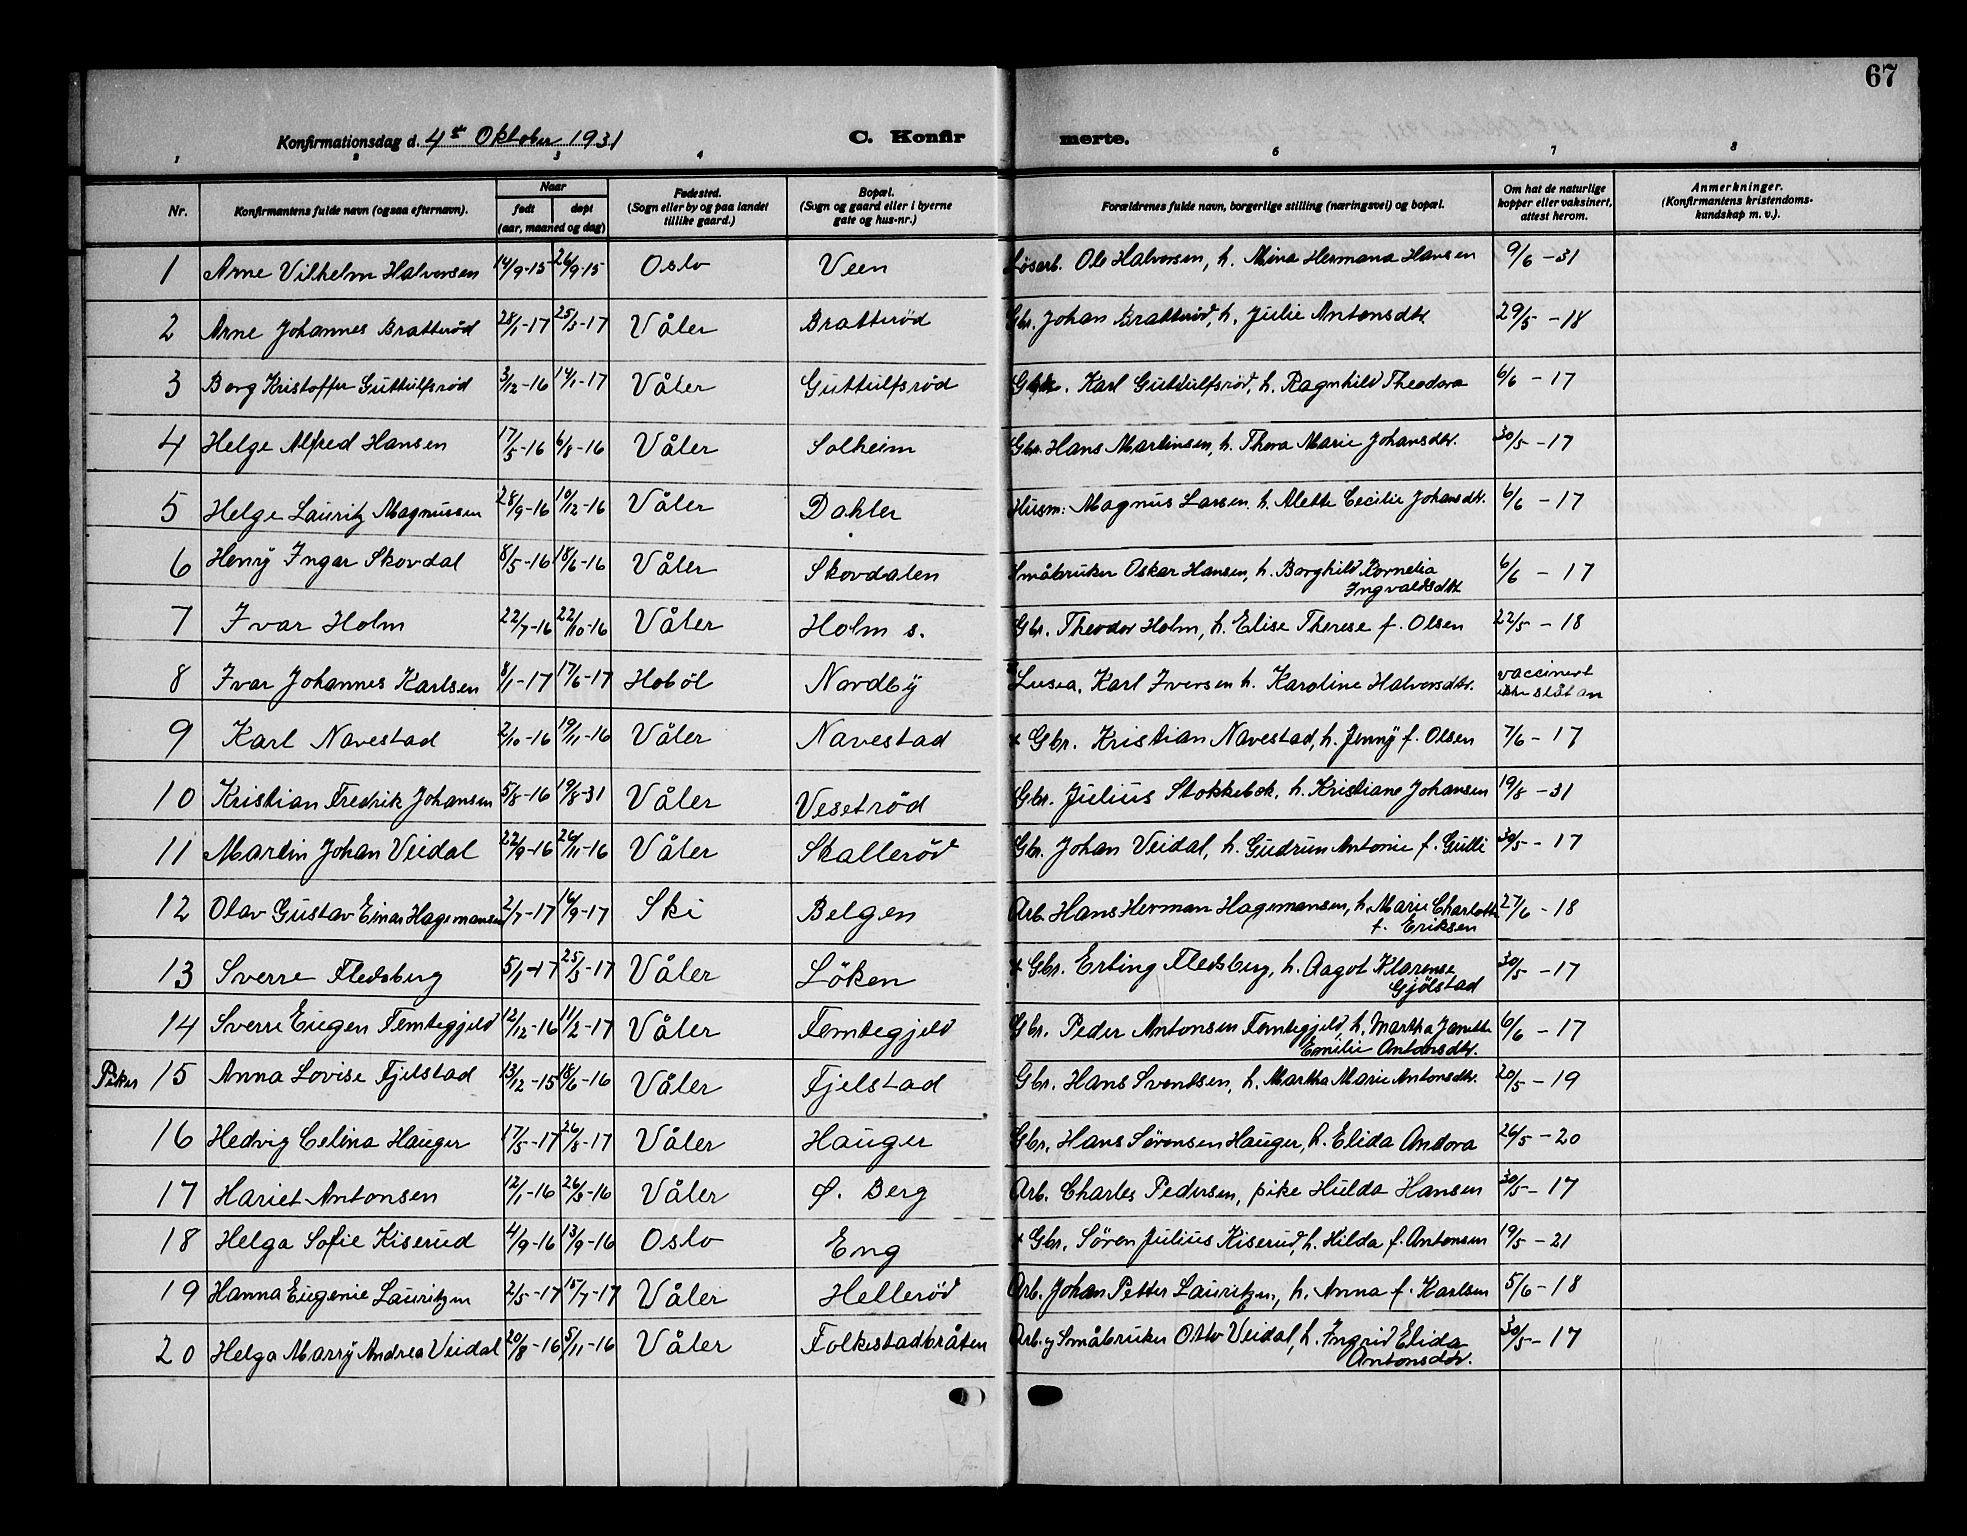 67
Konfirmationsdag d. 4de Oktober 1931 C. Konfirmerte.
1 2 3 4 6 7 8
Nr. Konfirmantens fulde navn (ogsaa efternavn). Naar født døpt (aar, maaned og dag) Fødested. (Sogn eller by og paa landet tillike gaard.) Bopæl. (Sogn og gaard eller i byerne gate og hus-nr.) Forældrenes fulde navn, borgerlige stilling (næringsvei) og bopæl. Om hat de naturlige kopper eller vaksinert, attest herom. Anmerkninger. (Konfirmantens kristendoms-kundskap m. v.).
1 Arne Vilhelm Halvorsen 14/9-15 26/9-15 Oslo Veen Løsarb. Ole Halvorsen, h. Mina Hermana Hansen 9/6 - 31
2 Arne Johannes Bratterød 28/1-17 25/3-17 Våler Bratterød Gbr. Johan Bratterød, h. Julie Antonsdtr. 29/5 - 18
3 Berg Kristoffer Guttulfsrød 3/12-16 14/1-17 Våler Guttulfsrød Gbr. Karl Guttulfsrød, h. Ragnhild Theodora 6/6 - 17
4 Helge Alfred Hansen 17/5-16 6/8-16 Våler Solheim Gbr. Hans Martinsen, h. Thora Marie Johansdtr. 30/5 - 17
5 Helge Lauritz Magnussen 28/9-16 10/12-16 Våler Dahler Husm: Magnus Larsen h. Alette Cecilie Johansdtr. 6/6 - 17
6 Henry Ingar Skovdal 8/5-16 18/6-16 Våler Skovdalen Småbruker Oskar Hansen, h. Borghild Kornelia Ingvaldsdtr. 6/6 - 17
7 Ivar Holm 22/7-16 22/10-16 Våler Holm s. Gbr. Theodor Holm, h. Elise Therese f. Olsen 22/5 - 18
8 Ivar Johannes Karlsen 8/1-17 17/6-17 Hobøl Nordby Karl Iversen h. Karoline Halvorsdtr. vaccinert ikke slåt an
9 Karl Navestad 2/10-16 19/11-16 Våler Navestad + Gbr. Kristian Navestad, h. Jenny f. Olsen 7/6 - 17
10 Kristian Fredrik Johansen 5/8-16 19/8-31 Våler Vesetrød Gbr. Julius Stokkebek, h. Kristiane Johansen 19/8 - 31
11 Martin Johan Veidal 22/9-16 26/11-16 Våler Skallerød Gbr. Johan Veidal, h. Gudrun Antonie f. Gulli 30/5 - 17
12 Olav Gustav Einar Hagemansen 2/7-17 16/9-17 Ski Belgen Arb. Hans Herman Hagemansen, h. Marie Charlotte f. Eriksen 27/6 - 18
13 Sverre Fledsberg 5/1-17 25/3-17 Våler Löken + Gbr. Erling Fledsberg, h. Aagot Klarense Gjölstad 30/5 - 17
14 Sverre Eugen Femtegjeld 12/12-16 11/2-17 Våler Femtegjeld Gbr. Peder Antonsen Femtegjeld, h. Martha Janette Emilie Antonsdtr. 6/6 - 17
Piker 15 Anna Lovise Fjelstad 13/12-15 18/6-16 Våler Fjelstad Gbr. Hans Svendsen, h. Martha Marie Antonsdtr. 20/5 - 19
16 Hedvig Celina Hauger 17/5-17 26/8-17 Våler Hauger Gbr. Hans Sørensen Hauger, h. Elida Andora 26/5 - 20
17 Hariet Antonsen 12/1-16 26/3-16 Våler Ø. Berg Arb. Charles Pedersen, pike Hulda Hansen 30/5 - 17
18 Helga Sofie Kiserud 4/9-16 13/9-16 Oslo Eng + Gbr. Søren Julius Kiserud, h. Hilda f. Antonsen 19/5 - 21
19 Hanna Eugenie Lauritzen 2/5-17 15/7-17 Våler Hellerød Arb. Johan Petter Lauritzen, h. Anna f. Karlsen 5/6 - 18
20 Helga Marry Andrea Veidal 20/8-16 5/11-16 Våler Folkestadbråten Arb. og Småbruker Otto Veidal, h. Ingrid Elida Antonsdtr. 30/5 - 17